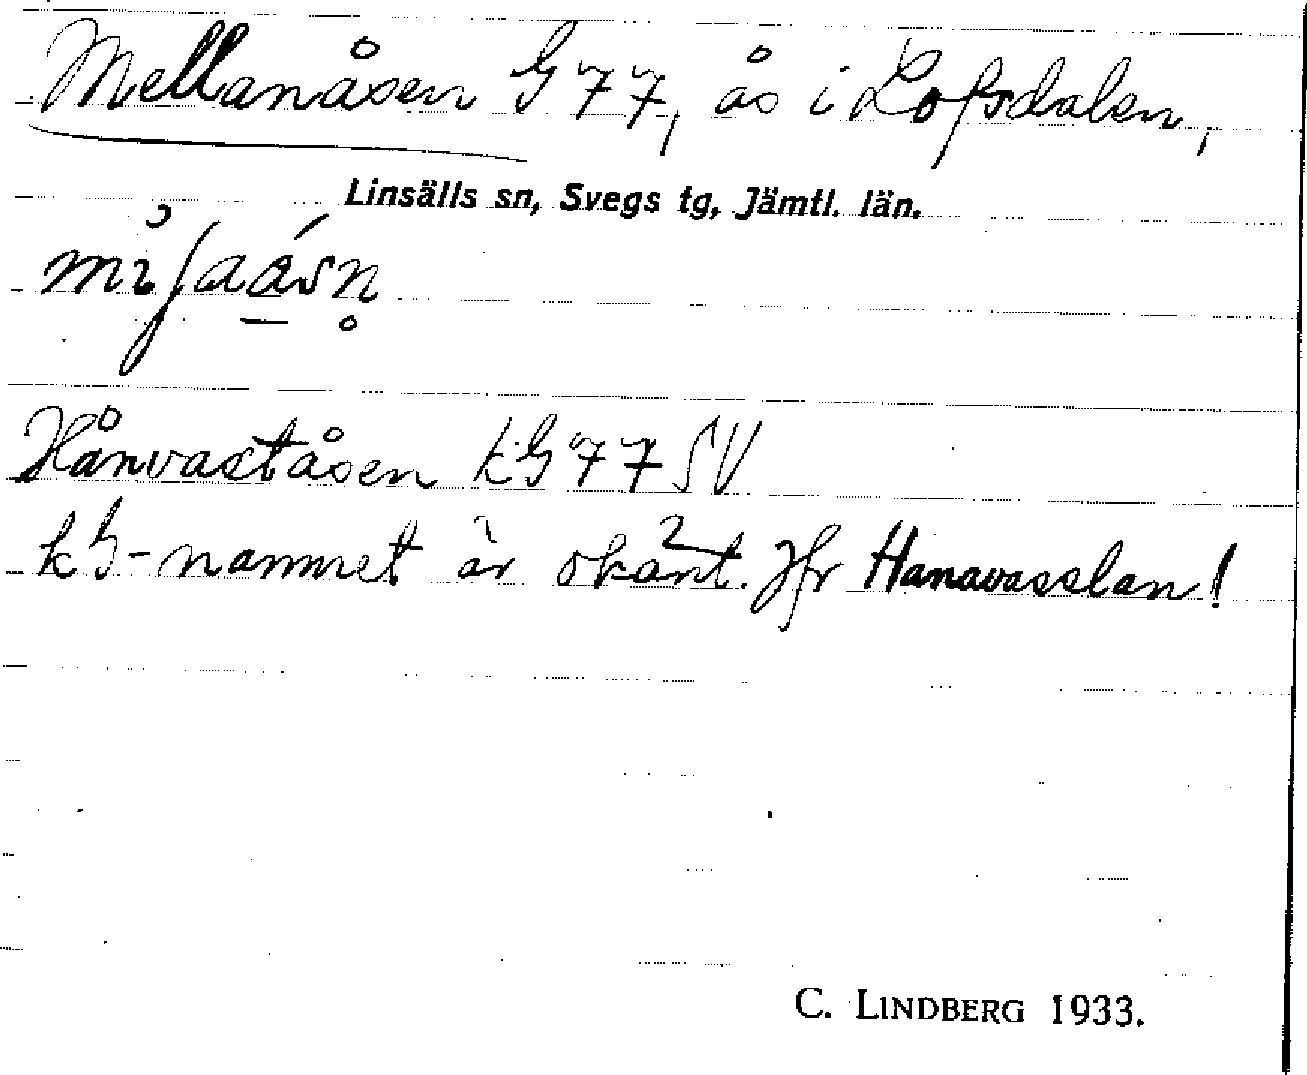 Mellanåsen G77, ås i Lofsdalen,
Linsälls sn, Svegs tg, Jämtl. län.
Hånvaståsen kG77SV
kG-namnet är okänt. Jfr Hanavasslan!
C. LINDBERG 1933.